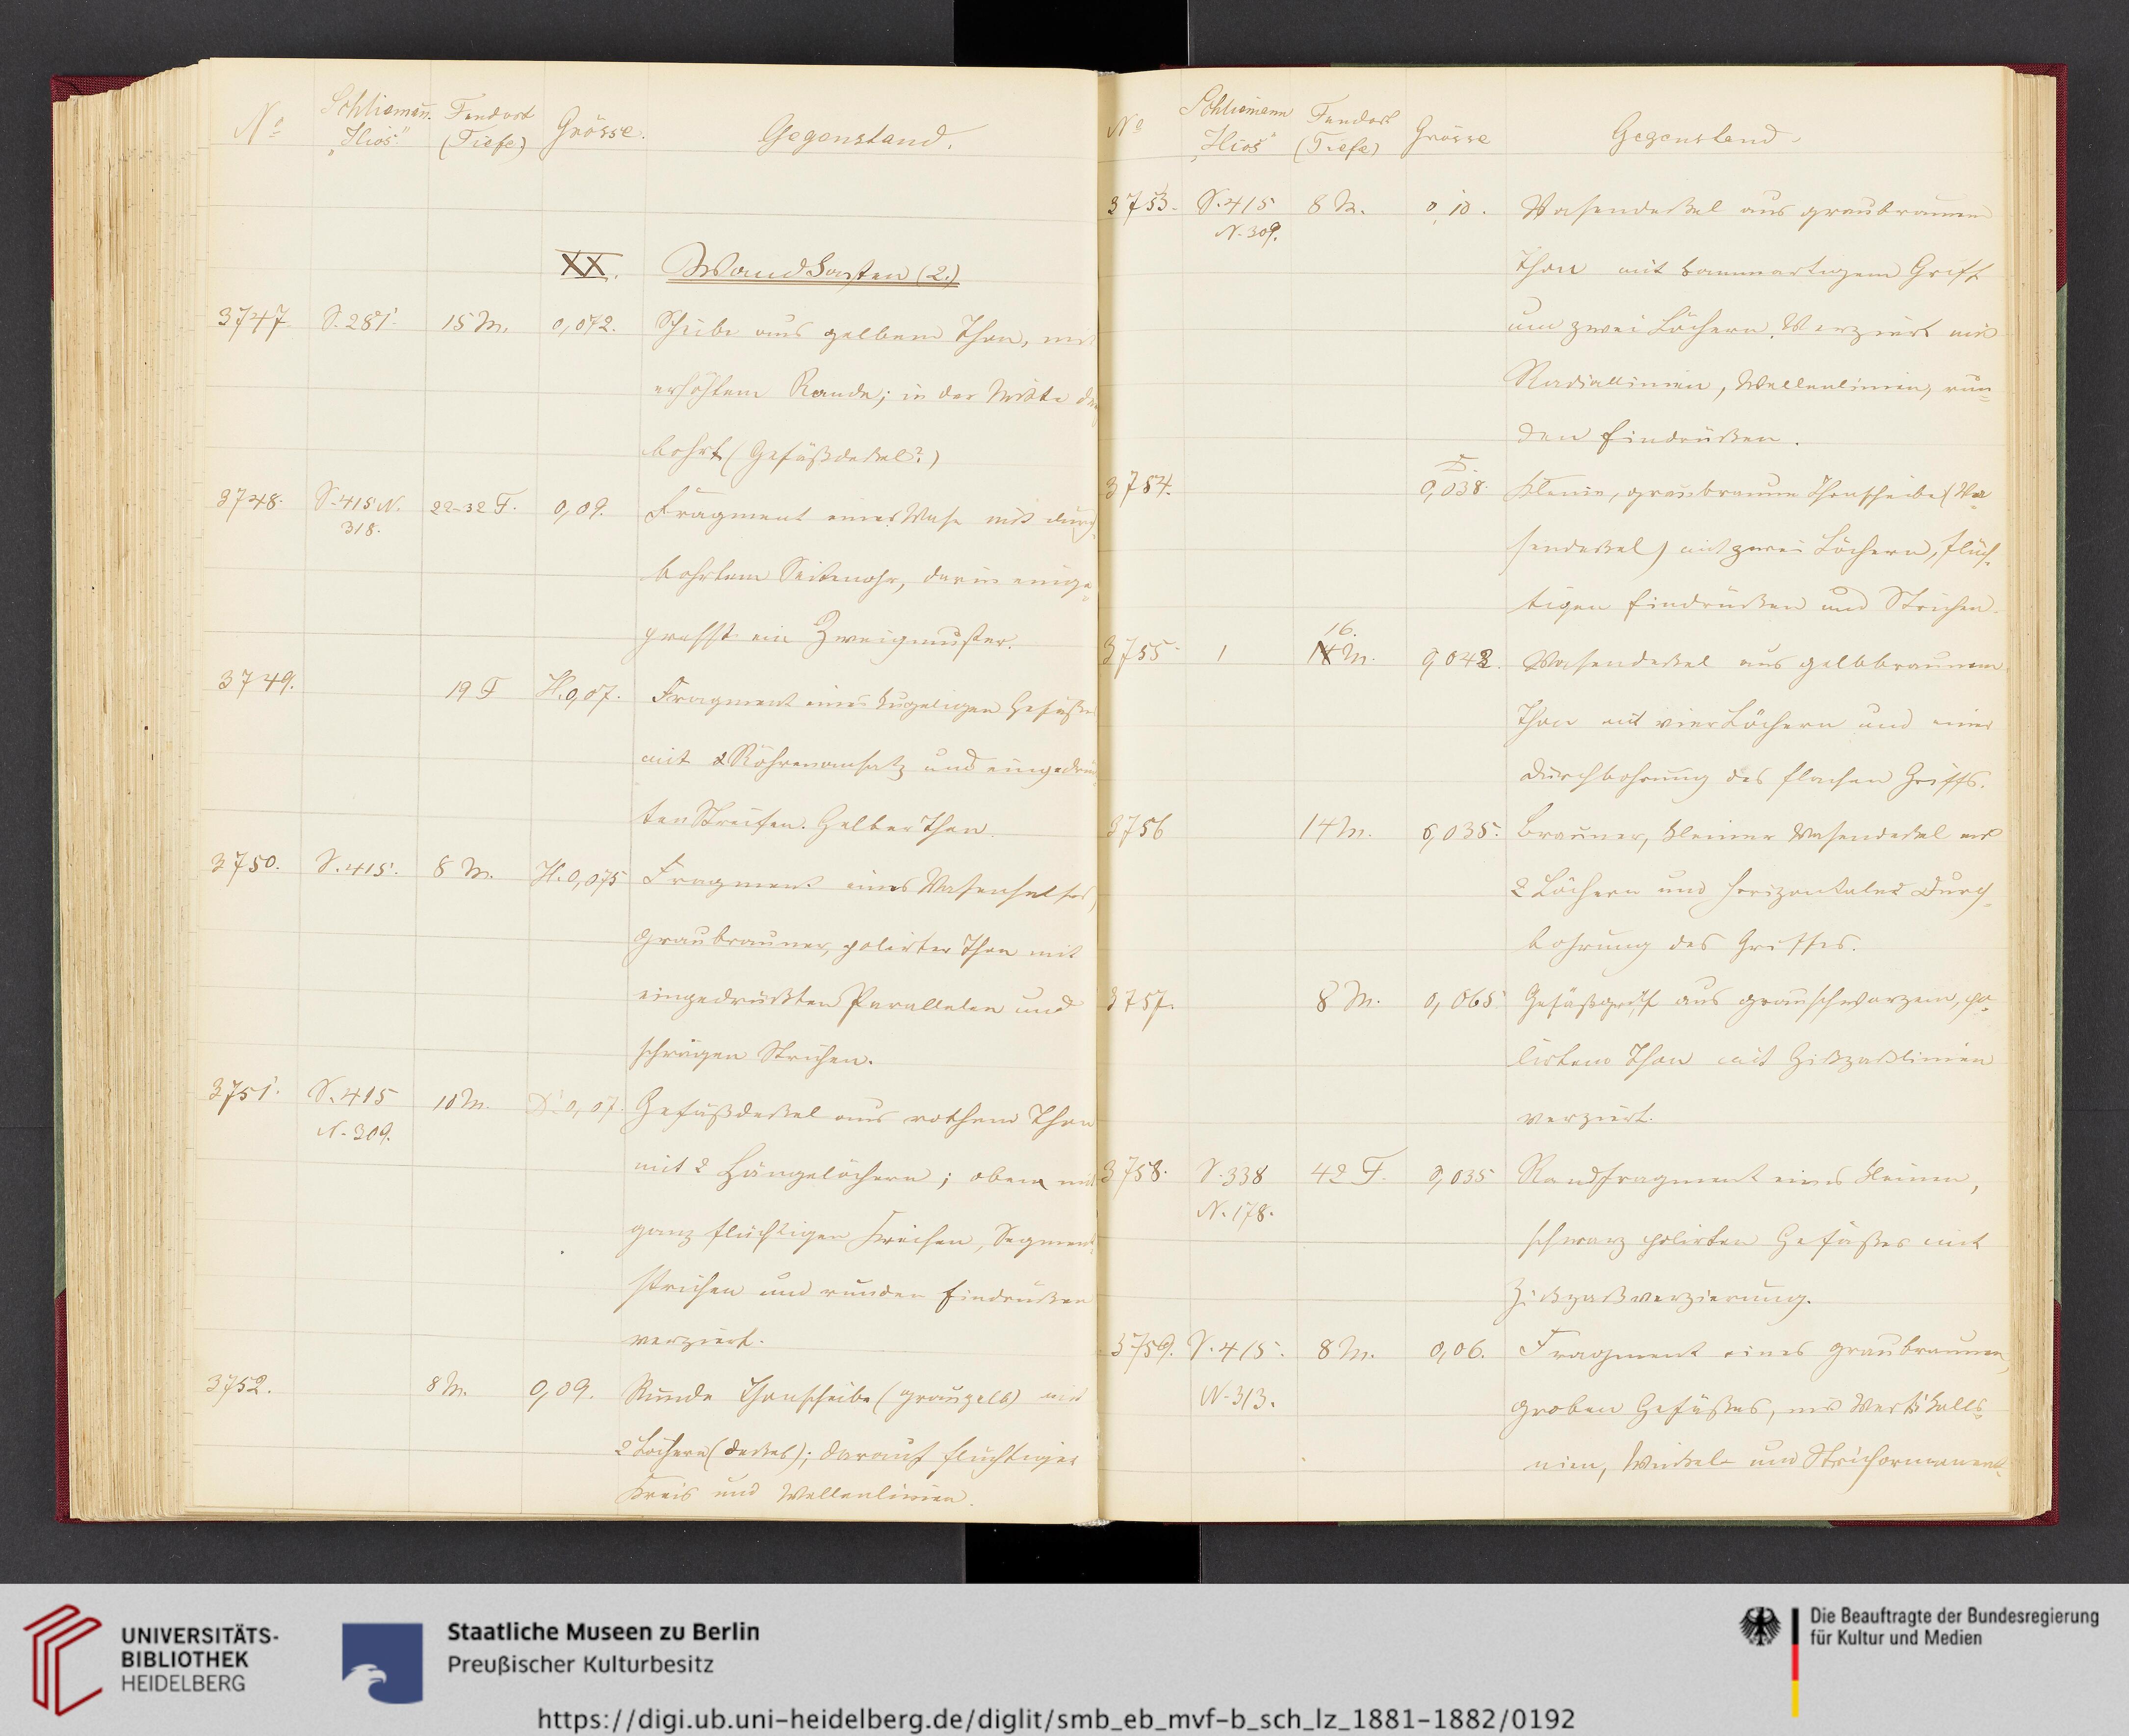 No
Schliemann.
"Ilios."
Fundort
(Tiefe)
Grösse.
Gegenstand.
XX. Wandkasten (2.)
3747 S. 281. 15 M. 0,072. Scheibe aus gelbem Thon, mit
erhöhtem Rande; in der Mitte
bohrt (Gefäßdeckel?)
3748. S. 415 N. 22-32 F. 0,09. Fragment einer Vase mit durch-
318.
bohrtem Seitenohr, darin einge-
presst ein Zweigmuster.
3749. 19 F H. 0,07. Fragment eines kugeligen Gefäßes
mit 2 Röhrenansatz und eingedrück-
ten Streifen. Gelber Thon.
3750. S. 415. 8 M. H. 0,075 Fragment eines Vasenhalses,
graubrauner, polirter Thon mit
eingedrückten Parallelen und
schrägen Strichen.
3751. S. 415 10 M. D. 0,07. Gefäßdeckel aus rothem Thon
N. 309.
mit 2 Hängelöchern; oben mit
ganz flüchtigen Kreisen, Segment-
strichen und runden Eindrücken
verziert.
3752. 8 M. 0,09. Runde Thonscheibe (graugelb) mit
2 Löchern (Deckel); darauf flüchtiger
Kreis und Wellenlinien.
No
Schliemann
"Ilios"
Fundort
(Tiefe)
Grösse
Gegenstand.
3753. S. 415 8 M. 0,10. Vasendeckel aus graubraunem
N. 309.
Thon mit kammartigem Griff
und zwei Löchern. Verziert mit
Radiallinien, Wellenlinien, run-
den Eindrücken.
D.
3754. 0,038. Kleine, graubraune Thonscheibe (Va-
sendeckel) mit zwei Löchern, flüch-
tigen Eindrücken und Strichen.
16.
3755. 1 14 M. 0,043. Vasendeckel aus gelbbraunem
Thon mit vier Löchern und einer
Durchbohrung des flachen Griffs.
3756 14 M. 0,035. Brauner, kleiner Vasendeckel mit
2 Löchern und horizontaler Durch-
bohrung des Griffes.
3757. 8 M. 0,065 Gefäßgriff aus grauschwarzem, po-
lirtem Thon mit Zickzacklinien
verziert.
3758. S. 338 42 F. 0,035 Randfragment eines kleinen,
N. 178.
schwarz polirten Gefäßes mit
Zickzackverzierung.
3759. S. 415. 8 M. 0,06. Fragment eines graubraunen,
N. 313.
groben Gefäßes, mit Vertikalli-
nien, Winkel- und Strichornament.
UNIVERSITÄTS-
BIBLIOTHEK
HEIDELBERG
Staatliche Museen zu Berlin
Preußischer Kulturbesitz
Die Beauftragte der Bundesregierung
für Kultur und Medien
https://digi.ub.uni-heidelberg.de/diglit/smb_eb_mvf-b_sch_lz_1881-1882/0192